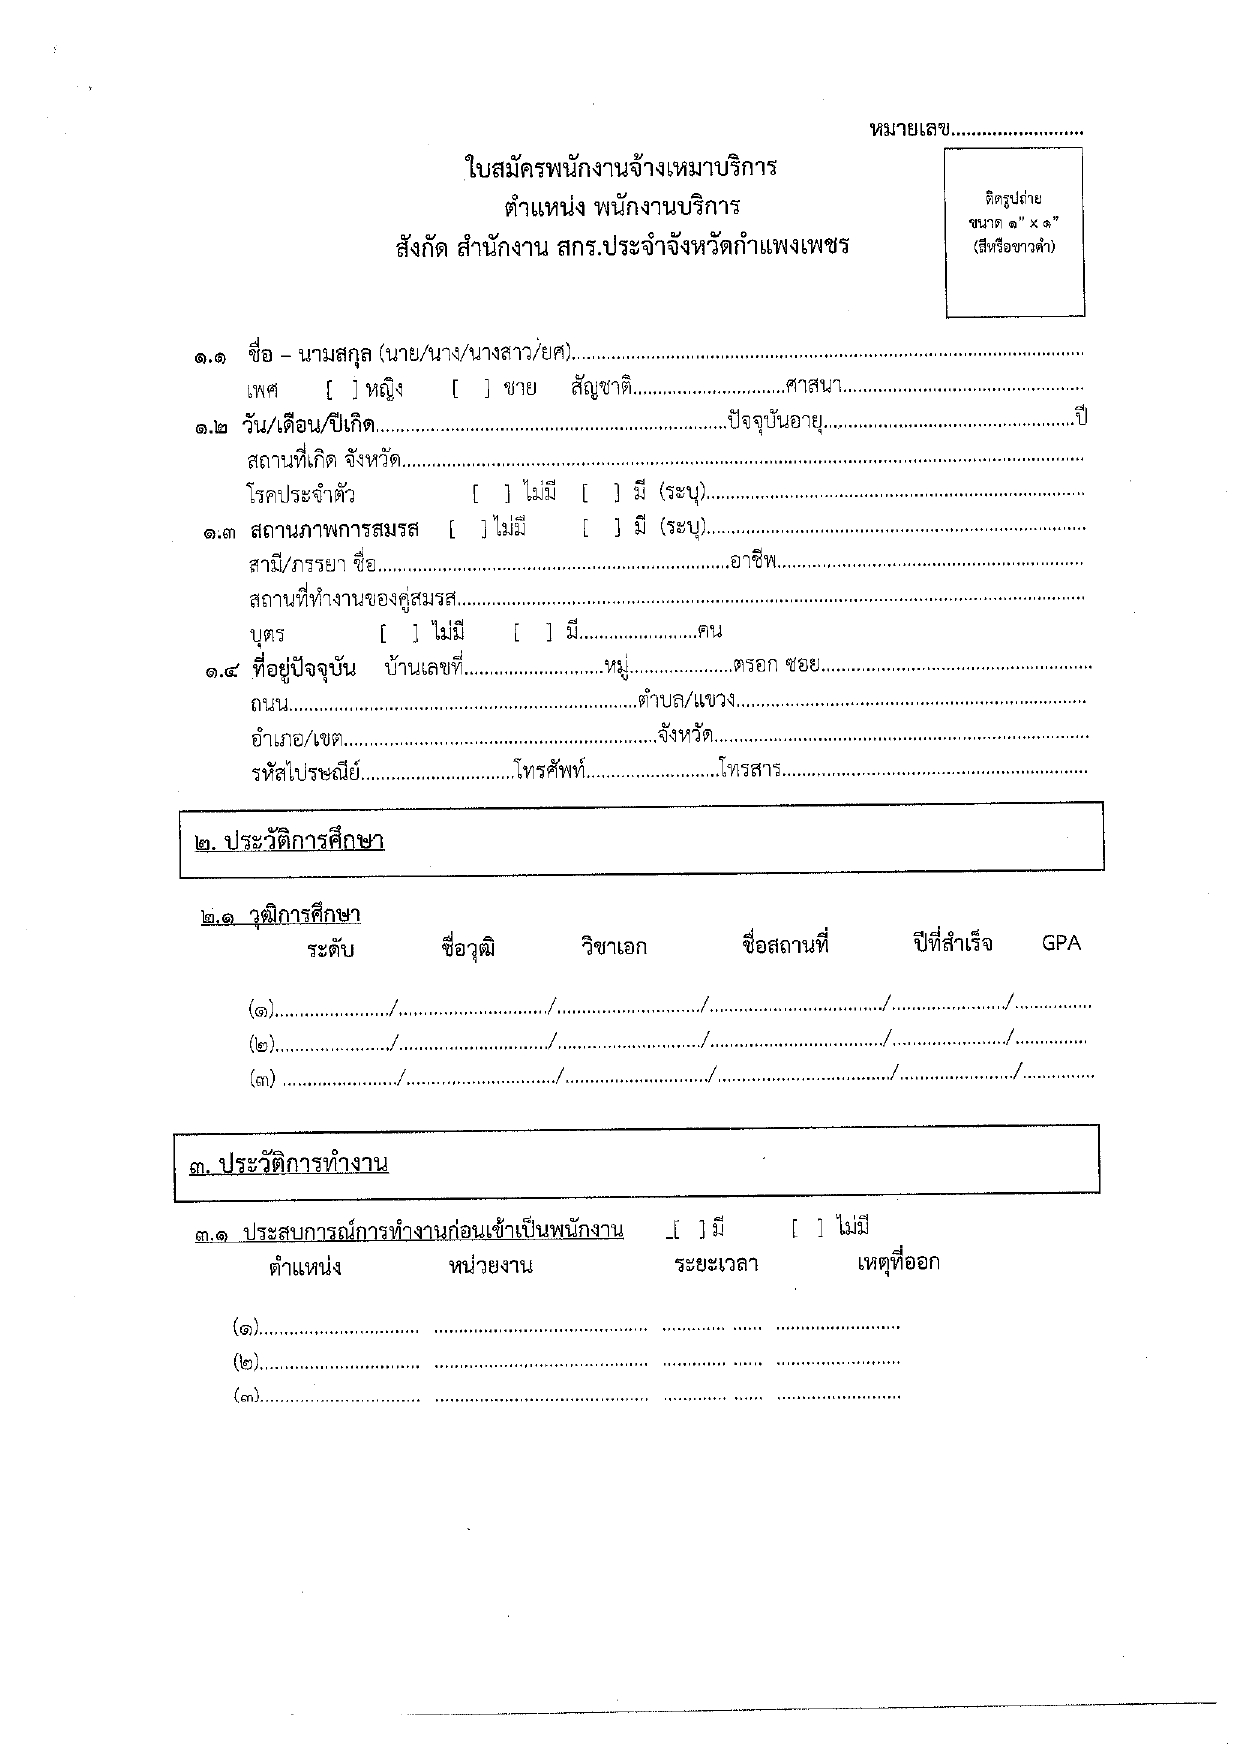 หมายเลข..........................
ใบสมัครพนักงานจ้างเหมาบริการ
ตำแหน่ง พนักงานบริการ
สังกัด สำนักงาน สกร.ประจำจังหวัดกำแพงเพชร
ติดรูปถ่าย
ขนาด ๑" x ๑"
(สีหรือขาวดำ)
๑.๑ ชื่อ – นามสกุล (นาย/นาง/นางสาว/ยศ)....................................................................................................
เพศ [ ] หญิง [ ] ชาย สัญชาติ..............................ศาสนา...............................................
๑.๒ วัน/เดือน/ปีเกิด......................................................................ปัจจุบันอายุ.................................................ปี
สถานที่เกิด จังหวัด.......................................................................................................................................
โรคประจำตัว [ ] ไม่มี [ ] มี (ระบุ)..........................................................................
๑.๓ สถานภาพการสมรส [ ] ไม่มี [ ] มี (ระบุ)..........................................................................
สามี/ภรรยา ชื่อ......................................................................อาชีพ............................................................
สถานที่ทำงานของคู่สมรส............................................................................................................................
บุตร [ ] ไม่มี [ ] มี.......................คน
๑.๔ ที่อยู่ปัจจุบัน บ้านเลขที่...........................หมู่....................ตรอก ซอย.....................................................
ถนน.....................................................................ตำบล/แขวง.....................................................................
อำเภอ/เขต..............................................................จังหวัด..........................................................................
รหัสไปรษณีย์..............................โทรศัพท์..........................โทรสาร............................................................
๒. ประวัติการศึกษา
๒.๑ วุฒิการศึกษา
ระดับ ชื่อวุฒิ วิชาเอก ชื่อสถานที่ ปีที่สำเร็จ GPA
(๑)......................./............................./............................/................................../......................./...............
(๒)......................./............................./............................/................................../......................./..............
(๓) ......................./............................./............................/................................../......................./..............
๓. ประวัติการทำงาน
๓.๑ ประสบการณ์การทำงานก่อนเข้าเป็นพนักงาน [ ] มี [ ] ไม่มี
ตำแหน่ง หน่วยงาน ระยะเวลา เหตุที่ออก
(๑)................................ ........................................... ............. ...... .........................
(๒)................................ ........................................... ............. ...... .........................
(๓)................................ ........................................... ............. ...... .........................